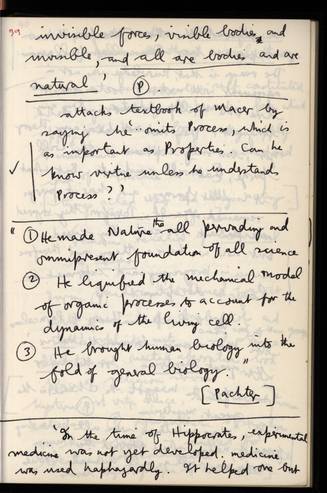 invisible forces, visible bodies, and
invisible, and all are bodies and are
natural' (P).
attacks textbook of Macer by
saying 'he omits Process, which is
as important as Properties. Can he
know virtue unless he understands
Process?'
" ① He made Nature the all pervading and
omnipresent foundation of all science
② He liquified the mechanical model
of organic processes to account for the
dynamics of the living cell.
③ He brought human biology into the
fold of general biology."
[Pachter]
'In the time of Hippocrates, experimental
medicine was not yet developed. medicine
was used haphazardly. It helped one but